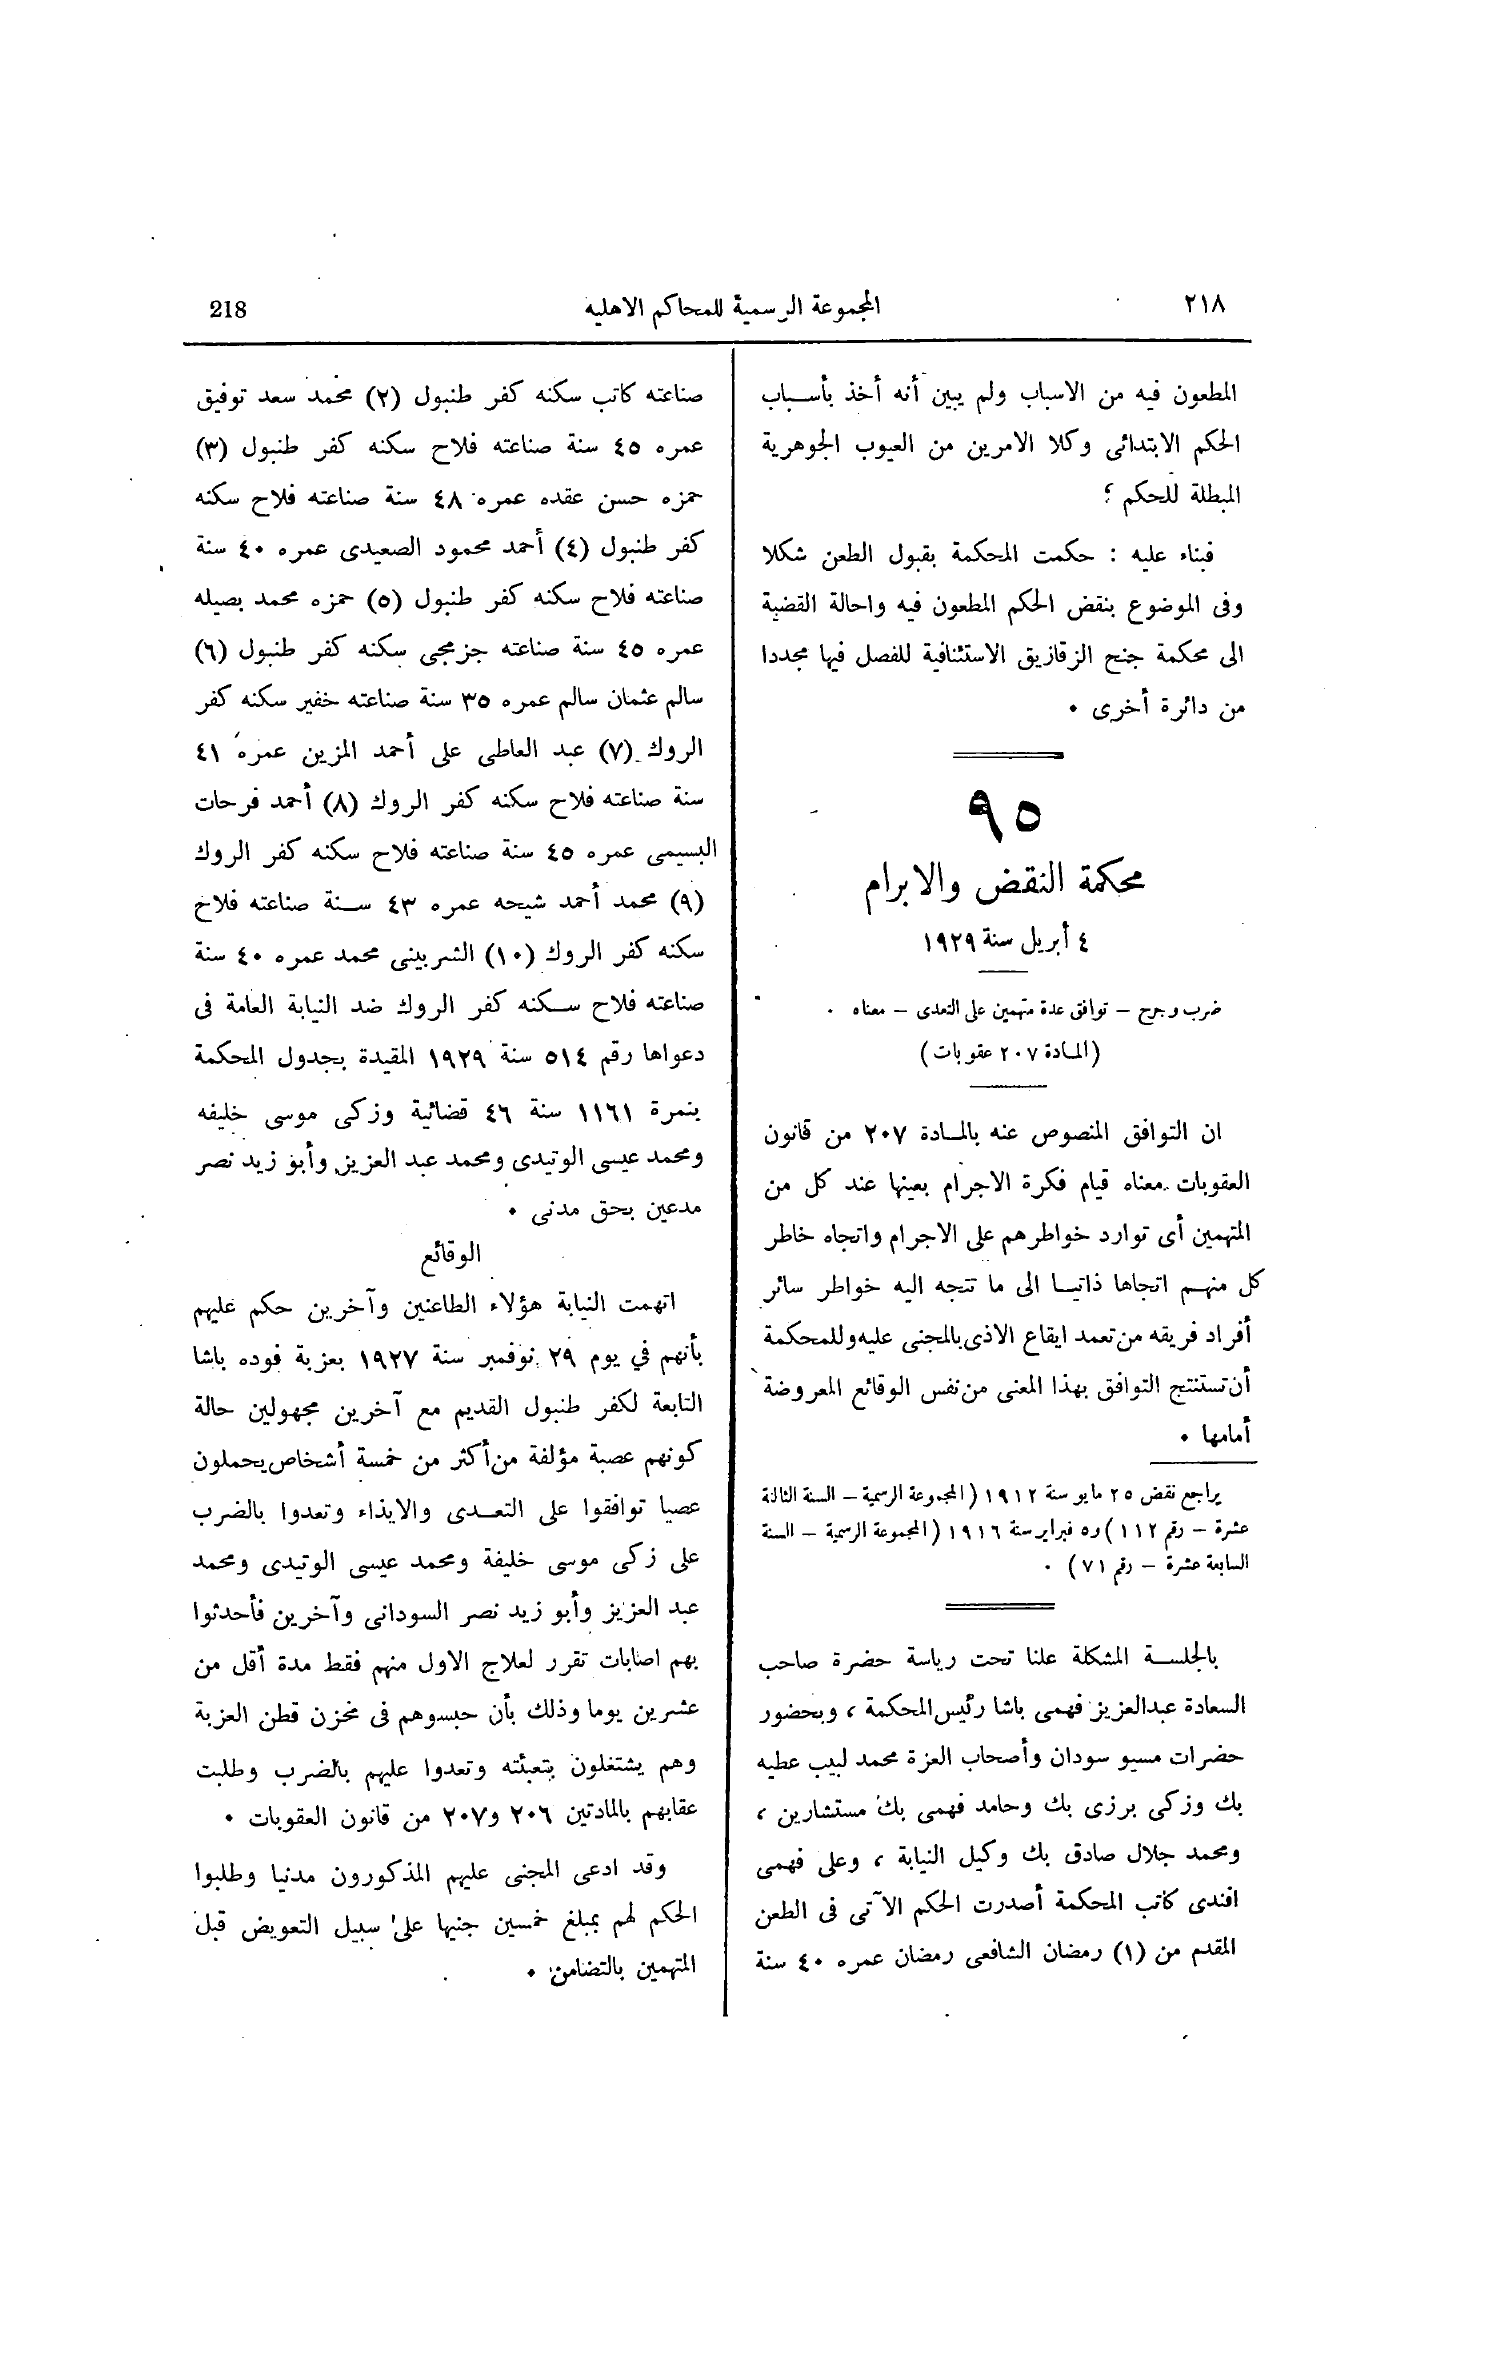 ٢١٨
المجموعة الرسمية للمحاكم الاهليه
218
المطعون فيه من الاسباب ولم يبين أنه أخذ بأسباب
الحكم الابتدائى وكلا الامرين من العيوب الجوهرية
المبطلة للحكم ؛
فبناء عليه : حكمت المحكمة بقبول الطعن شكلا
وفى الموضوع بنقض الحكم المطعون فيه واحالة القضية
الى محكمة جنح الزقازيق الاستئنافية للفصل فيها مجددا
من دائرة أخرى ٠
٩٥
محكمة النقض والابرام
٤ أبريل سنة ١٩٢٩
ضرب وجرح – توافق عدة متهمين على التعدى – معناه ٠
(المادة ٢٠٧ عقوبات)
ان التوافق المنصوص عنه بالمادة ٢٠٧ من قانون
العقوبات معناه قيام فكرة الاجرام بعينها عند كل من
المتهمين أى توارد خواطرهم على الاجرام واتجاه خاطر
كل منهم اتجاها ذاتيا الى ما تتجه اليه خواطر سائر
أفراد فريقه من تعمد ايقاع الاذى بالمجنى عليه وللمحكمة
أن تستنتج التوافق بهذا المعنى من نفس الوقائع المعروضة
أمامها ٠
يراجع نقض ٢٥ مايو سنة ١٩١٢ (المجموعة الرسمية – السنة الثالثة
عشرة – رقم ١١٢) و٥ فبراير سنة ١٩١٦ (المجموعة الرسمية – السنة
السابعة عشرة – رقم ٧١) ٠
بالجلسة المشكلة علنا تحت رياسة حضرة صاحب
السعادة عبدالعزيز فهمى باشا رئيس المحكمة ، وبحضور
حضرات مسيو سودان وأصحاب العزة محمد لبيب عطيه
بك وزكى برزى بك وحامد فهمى بك مستشارين ،
ومحمد جلال صادق بك وكيل النيابة ، وعلى فهمى
افندى كاتب المحكمة أصدرت الحكم الآتى فى الطعن
المقدم من (١) رمضان الشافعى رمضان عمره ٤٠ سنة
صناعته كاتب سكنه كفر طنبول (٢) محمد سعد توفيق
عمره ٤٥ سنة صناعته فلاح سكنه كفر طنبول (٣)
حمزه حسن عقده عمره ٤٨ سنة صناعته فلاح سكنه
كفر طنبول (٤) أحمد محمود الصعيدى عمره ٤٠ سنة
صناعته فلاح سكنه كفر طنبول (٥) حمزه محمد بصيله
عمره ٤٥ سنة صناعته جزمجى سكنه كفر طنبول (٦)
سالم عثمان سالم عمره ٣٥ سنة صناعته خفير سكنه كفر
الروك (٧) عبد العاطى على أحمد المزين عمره ٤١
سنة صناعته فلاح سكنه كفر الروك (٨) أحمد فرحات
البسيمى عمره ٤٥ سنة صناعته فلاح سكنه كفر الروك
(٩) محمد أحمد شيحه عمره ٤٣ سنة صناعته فلاح
سكنه كفر الروك (١٠) الشربينى محمد عمره ٤٠ سنة
صناعته فلاح سكنه كفر الروك ضد النيابة العامة فى
دعواها رقم ٥١٤ سنة ١٩٢٩ المقيدة بجدول المحكمة
بنمرة ١١٦١ سنة ٤٦ قضائية وزكى موسى خليفه
ومحمد عيسى الوتيدى ومحمد عبد العزيز وأبو زيد نصر
مدعين بحق مدنى ٠
الوقائع
اتهمت النيابة هؤلاء الطاعنين وآخرين حكم عليهم
بأنهم في يوم ٢٩ نوفمبر سنة ١٩٢٧ بعزبة فوده باشا
التابعة لكفر طنبول القديم مع آخرين مجهولين حالة
كونهم عصبة مؤلفة من أكثر من خمسة أشخاص يحملون
عصيا توافقوا على التعدى والايذاء وتعدوا بالضرب
على زكى موسى خليفة ومحمد عيسى الوتيدى ومحمد
عبد العزيز وأبو زيد نصر السودانى وآخرين فأحدثوا
بهم اصابات تقرر لعلاج الاول منهم فقط مدة أقل من
عشرين يوما وذلك بأن حبسوهم فى مخزن قطن العزبة
وهم يشتغلون بتعبئته وتعدوا عليهم بالضرب وطلبت
عقابهم بالمادتين ٢٠٦ و٢٠٧ من قانون العقوبات ٠
وقد ادعى المجنى عليهم المذكورون مدنيا وطلبوا
الحكم لهم بمبلغ خمسين جنيها على سبيل التعويض قبل
المتهمين بالتضامن ٠